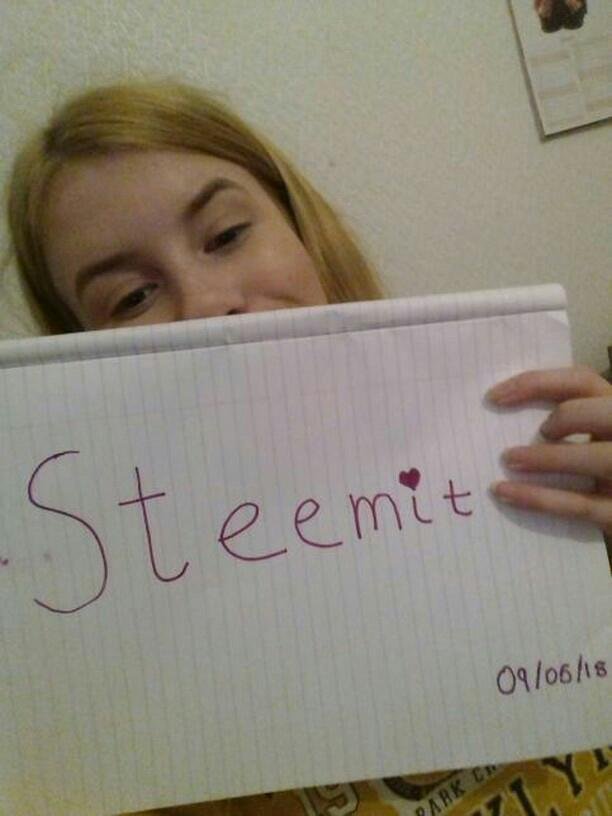 Steemit
09/05/18
19
PARK C
KLYN